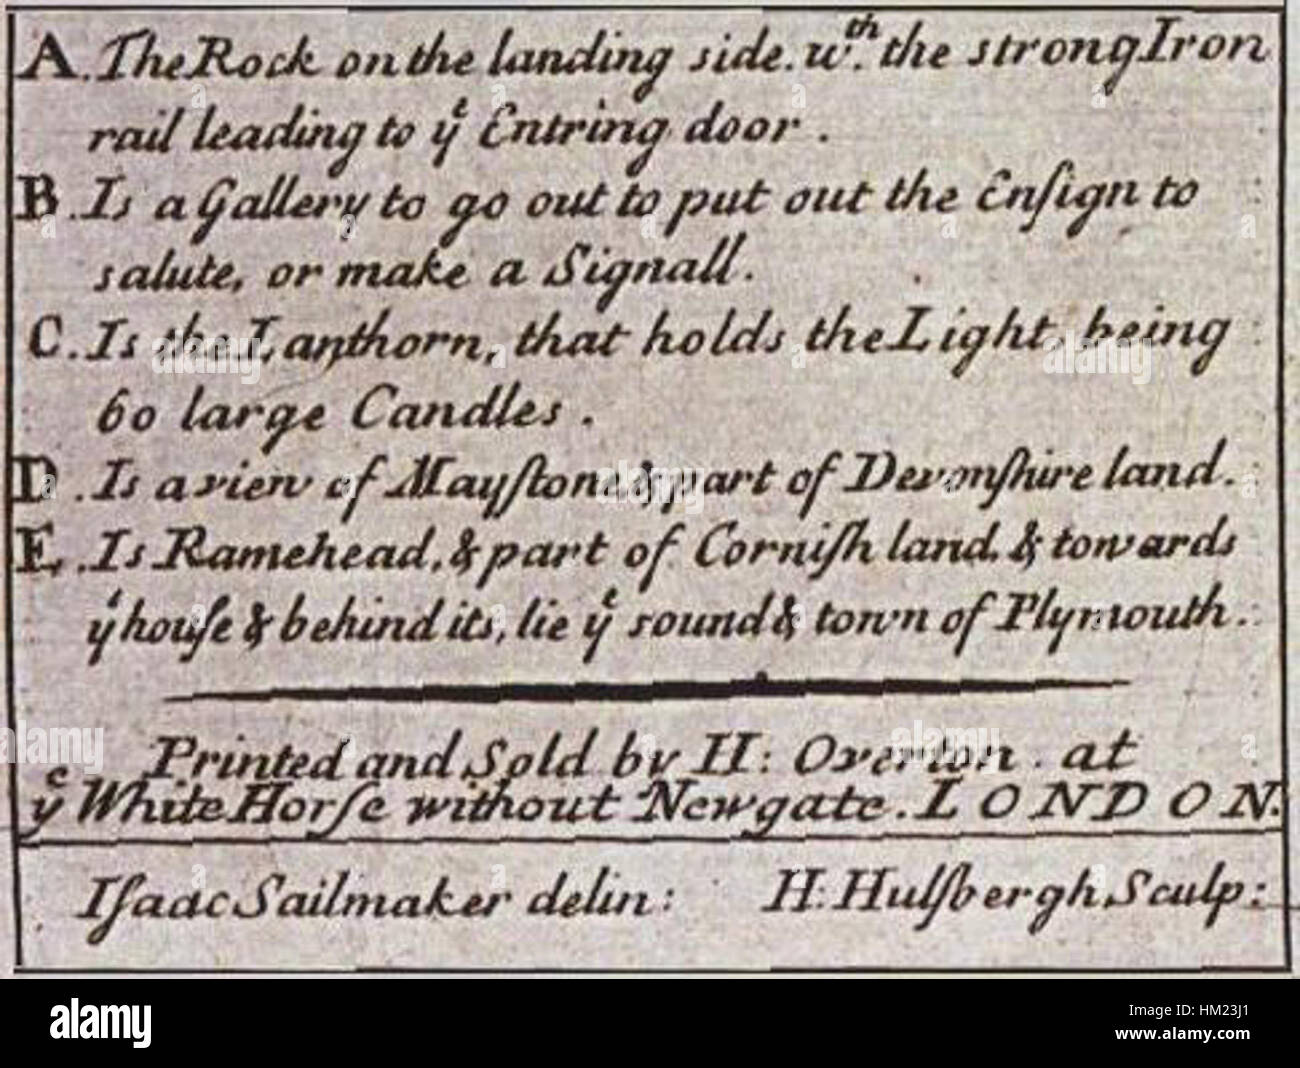 A. The Rock on the landing side. wth. the strong Iron
rail leading to ye Entring door.
B. Is a Gallery to go out to put out the Enſign to
salute, or make a Signall.
C. Is the Lanthorn, that holds the Light, being
60 large Candles.
D. Is a view of Mayſtone & part of Devonſhire land.
E. Is Ramehead, & part of Corniſh land, & towards
ye houſe & behind its, lie ye sound & town of Plymouth.
Printed and Sold by H: Overton. at
ye White Horſe without Newgate. LONDON.
Iſaac Sailmaker delin: H: Hulſbergh Sculp:
alamy
Image ID: HM23J1
www.alamy.com